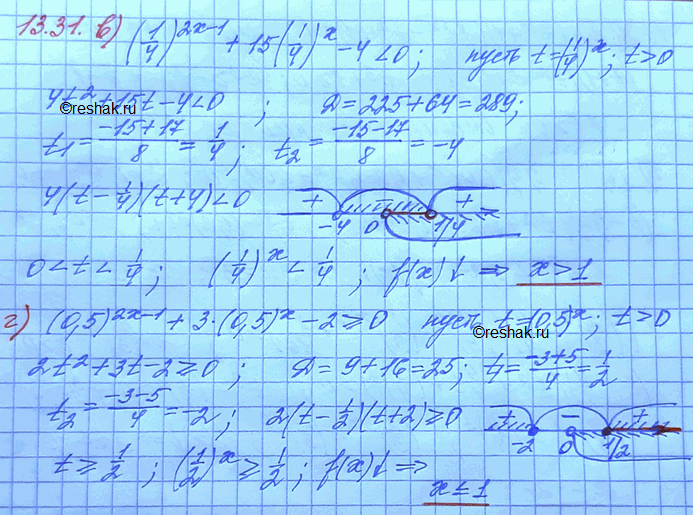 13.31. в) (1/4)^(2x-1) + 15(1/4)^x - 4 < 0; пусть t = (1/4)^x; t > 0
4t² + 15t - 4 < 0; Д = 225 + 64 = 289;
©reshak.ru
t₁ = (-15+17)/8 = 1/4; t₂ = (-15-17)/8 = -4
4(t - 1/4)(t + 4) < 0 + - + -4 0 1/4
0 < t < 1/4; (1/4)^x < 1/4; f(x)↓ ⇒ x > 1
г) (0,5)^(2x-1) + 3·(0,5)^x - 2 ≥ 0 пусть t = (0,5)^x; t > 0
©reshak.ru
2t² + 3t - 2 ≥ 0; Д = 9 + 16 = 25; t₁ = (-3+5)/4 = 1/2
t₂ = (-3-5)/4 = -2; 2(t - 1/2)(t + 2) ≥ 0 + - + -2 0 1/2
t ≥ 1/2; (1/2)^x ≥ 1/2; f(x)↓ ⇒
x ≤ 1